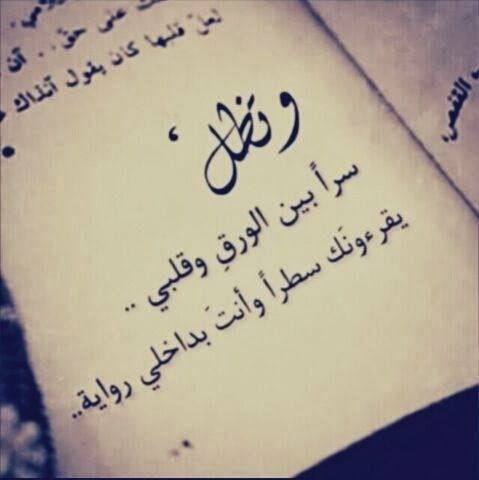 على حق .. آن
لعلّ قلبها كان يقول آنذاك
و تظل ،
سراً بين الورقِ وقلبي ..
يقرءونَك سطراً وأنتَ بداخلي رواية..